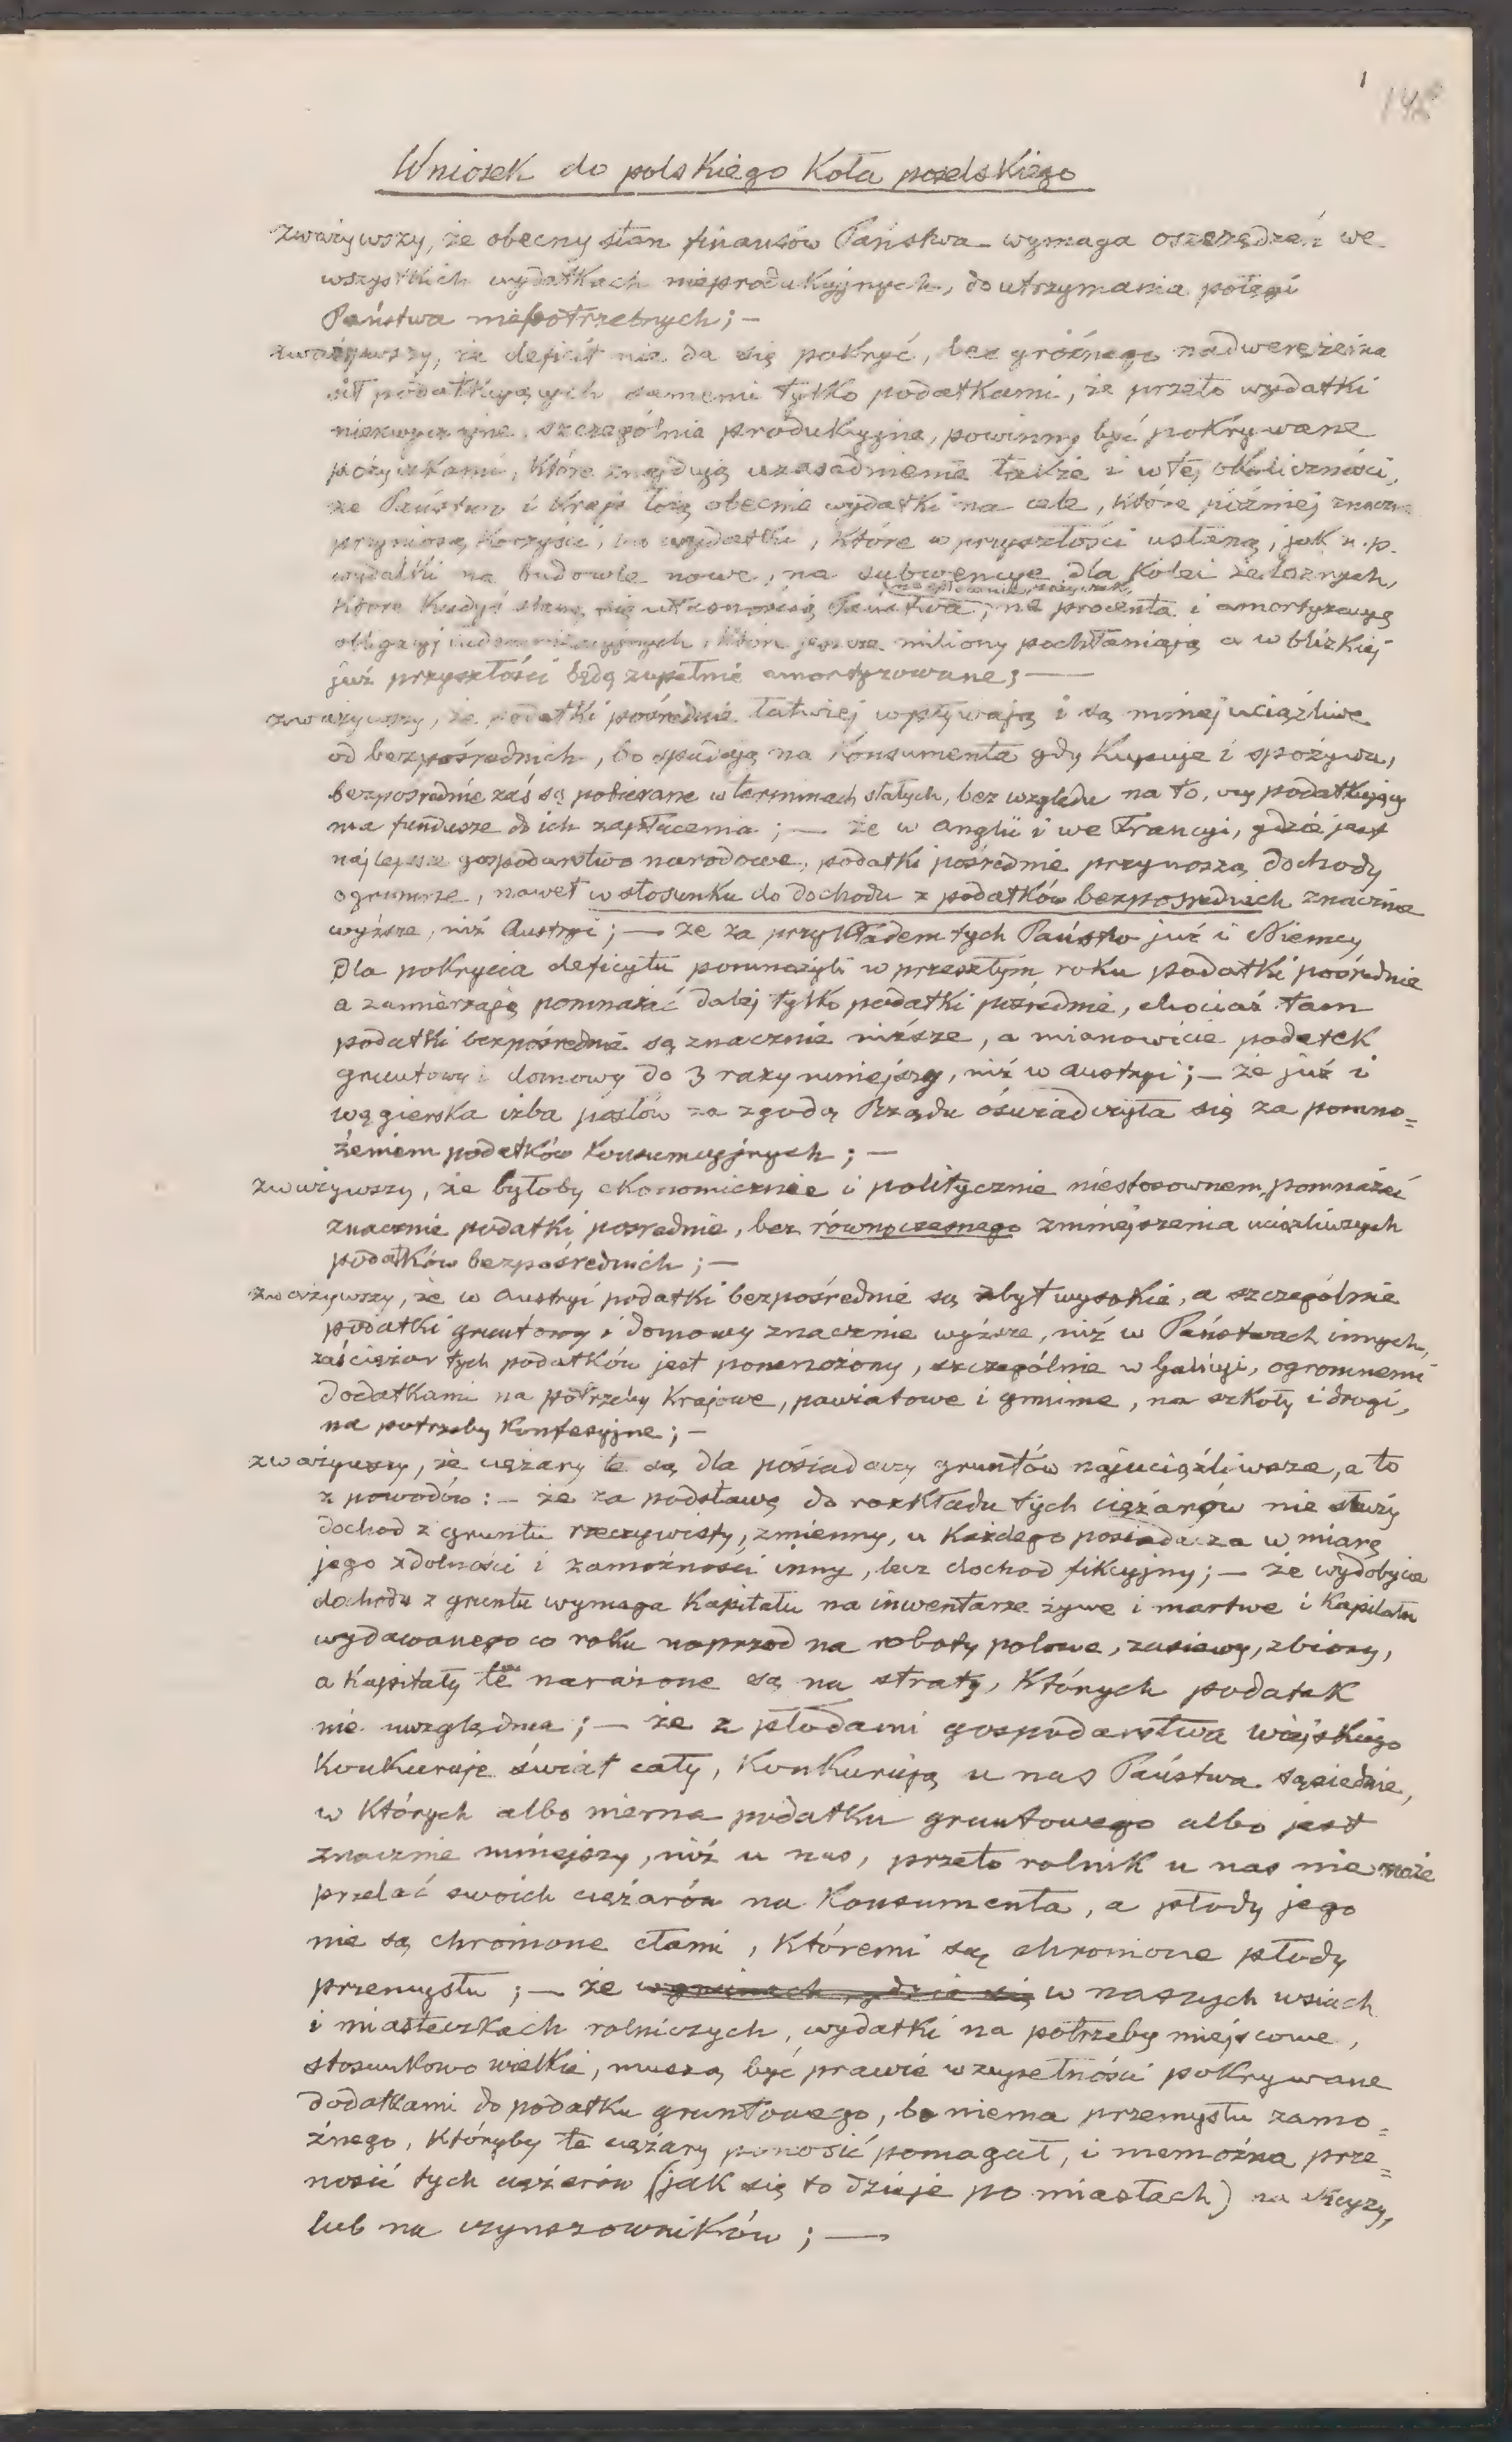 1
Wniosek do polskiego Koła poselskiego
zważywszy, że obecny stan finansów Państwa wymaga oszczędzeń we
wszystkich wydatkach nieprodukcyjnych, do utrzymania potęgi
Państwa niepotrzebnych; —
zważywszy, że deficit nie da się pokryć, bez groźnego nadwerężenia
sił podatkujących samemi tylko podatkami, że przeto wydatki
niezwyczajne, szczególnie produkcyjne, powinny być pokrywane
pożyczkami, które znajdują uzasadnienie także i w tej okoliczności,
że Państwo i Kraje łożą obecnie wydatki na cele, które później znaczne
przyniosą korzyści, na wydatki, które w przyszłości ustaną, jak n.p.
wydatki na budowle nowe, na subwencye dla kolei żelaznych,
które kiedyś staną się własnością Państwa, na procenta i amortyzacyą
obligacyj indemnizacyjnych, które jeszcze miliony pochłaniają a w blizkiej
już przyszłości będą zupełnie amortyzowane; —
zważywszy, że podatki pośrednie łatwiej wpływają i są mniej uciążliwe
od bezpośrednich, bo spadają na Konsumenta gdy kupuje i spożywa,
bezpośrednie zaś są pobierane w terminach stałych, bez względu na to, czy podatkujący
ma fundusze do ich zapłacenia; — że w Anglii i we Francyi, gdzie jest
najlepsze gospodarstwo narodowe, podatki pośrednie przynoszą dochody
ogromne, nawet w stosunku do dochodu z podatków bezpośrednich znacznie
wyższe, niż Austryi; — że za przykładem tych Państw już i Niemcy
dla pokrycia deficytu pomnożyli w przeszłym roku podatki pośrednie
a zamierzają pomnażać dalej tylko podatki pośrednie, chociaż tam
podatki bezpośrednie są znacznie niższe, a mianowicie podatek
gruntowy i domowy do 3 razy mniejszy, niż w Austryi; — że już i
węgierska izba posłów za zgodą Rządu oświadczyła się za pomno=
żeniem podatków konsumcyjnych; —
zważywszy, że byłoby ekonomicznie i politycznie niestosownem, pomnażać
znacznie podatki pośrednie, bez równoczesnego zmniejszenia uciążliwszych
podatków bezpośrednich; —
zważywszy, że w Austryi podatki bezpośrednie są zbyt wysokie, a szczególnie
podatki gruntowy i domowy znacznie wyższe, niż w Państwach innych,
zaś ciężar tych podatków jest pomnożony, szczególnie w Galicyi, ogromnemi
dodatkami na potrzeby Krajowe, powiatowe i gminne, na szkoły i drogi,
na potrzeby konfesyjne; —
zważywszy, że ciężary te są dla posiadaczy gruntów najuciążliwsze, a to
z powodów: — że za podstawę do rozkładu tych ciężarów nie służy
dochod z gruntu rzeczywisty, zmienny, u każdego posiadacza w miarę
jego zdolności i zamożności inny, lecz dochod fikcyjny; — że wydobycie
dochodu z gruntu wymaga Kapitału na inwentarze żywe i martwe i Kapitału
wydawanego co roku naprzod na roboty polowe, zasiewy, zbiory,
a Kapitały te narażone są na straty, których podatek
nie uwzględnia; — że z płodami gospodarstwa wiejskiego
Konkuruje świat cały, Konkurują u nas Państwa sąsiednie,
w których albo niema podatku gruntowego albo jest
znacznie mniejszy, niż u nas, przeto rolnik u nas nie może
przelać swoich ciężarów na Konsumenta, a płody jego
nie są chronione cłami, któremi są chronione płody
przemysłu; — że w gminach, gdzie się w naszych wsiach
i miasteczkach rolniczych, wydatki na potrzeby miejscowe,
stosunkowo wielkie, muszą być prawie w zupełności pokrywane
dodatkami do podatku gruntowego, bo niema przemysłu zamo=
żnego, któryby te ciężary ponosić pomagał, i niemożna prze=
nosić tych ciężarów (jak się to dzieje po miastach) na
lub na czynszowników; —